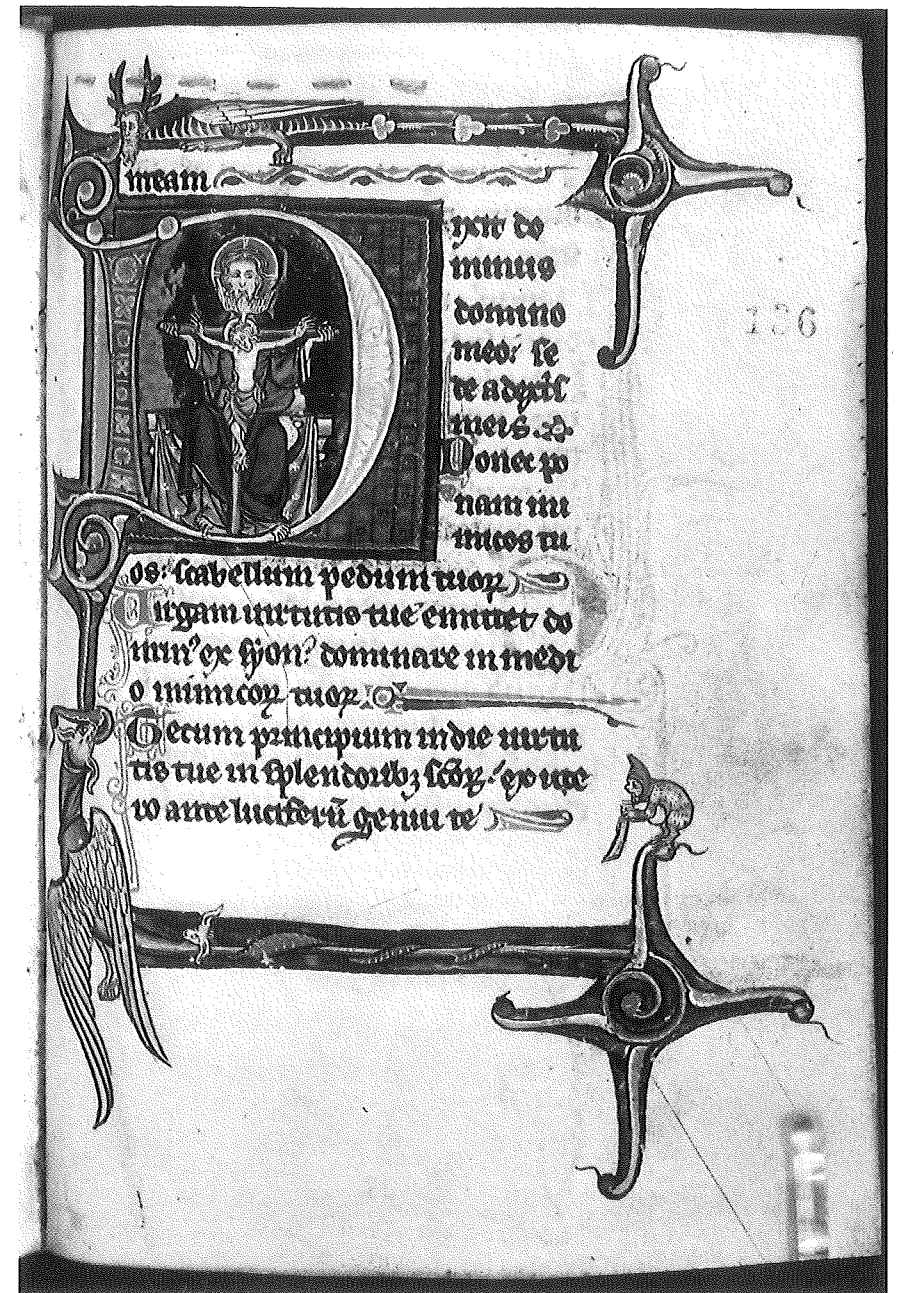 meam
Dyxit do
minus
domino
meo: se
de a dextris
meis
Donec po
nam ini
micos tu
os: scabellum pedum tuoꝝ
Virgam uirtutis tue emittet do
minꝰ ex syon: dominare in medi
o inimicoꝝ tuoꝝ
Tecum principium in die uirtu
tis tue in splendoribꝫ scōꝝ: ex ute
ro ante luciferū genui te
136